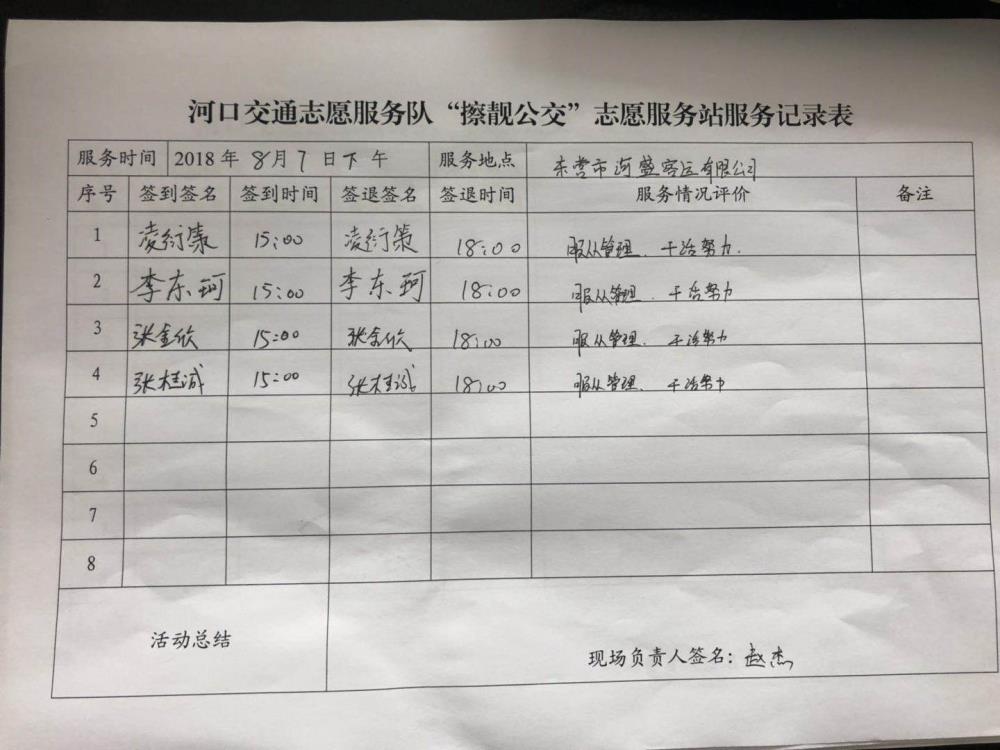 河口交通志愿服务队“擦靓公交”志愿服务站服务记录表
服务时间 2018年8月7日下午 服务地点 东营市河盛客运有限公司
序号 签到签名 签到时间 签退签名 签退时间 服务情况评价 备注
1 凌衍策 15:00 凌衍策 18:00 服从管理、干活努力.
2 李东珂 15:00 李东珂 18:00 服从管理、干活努力
3 张金欣 15:00 张金欣 18:00 服从管理、干活努力
4 张桂诚 15:00 张桂诚 18:00 服从管理、干活努力
5
6
7
8
活动总结
现场负责人签名：赵杰